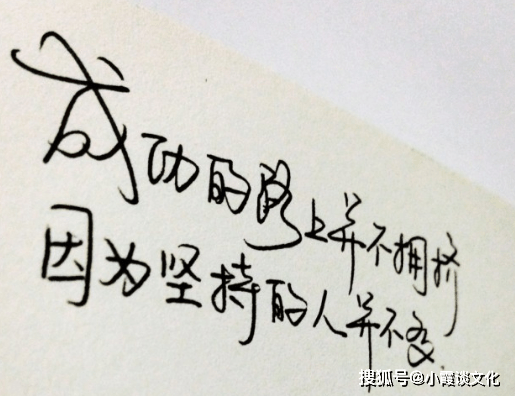 成功的路上并不拥挤
因为坚持的人并不多.
搜狐号@小霞谈文化